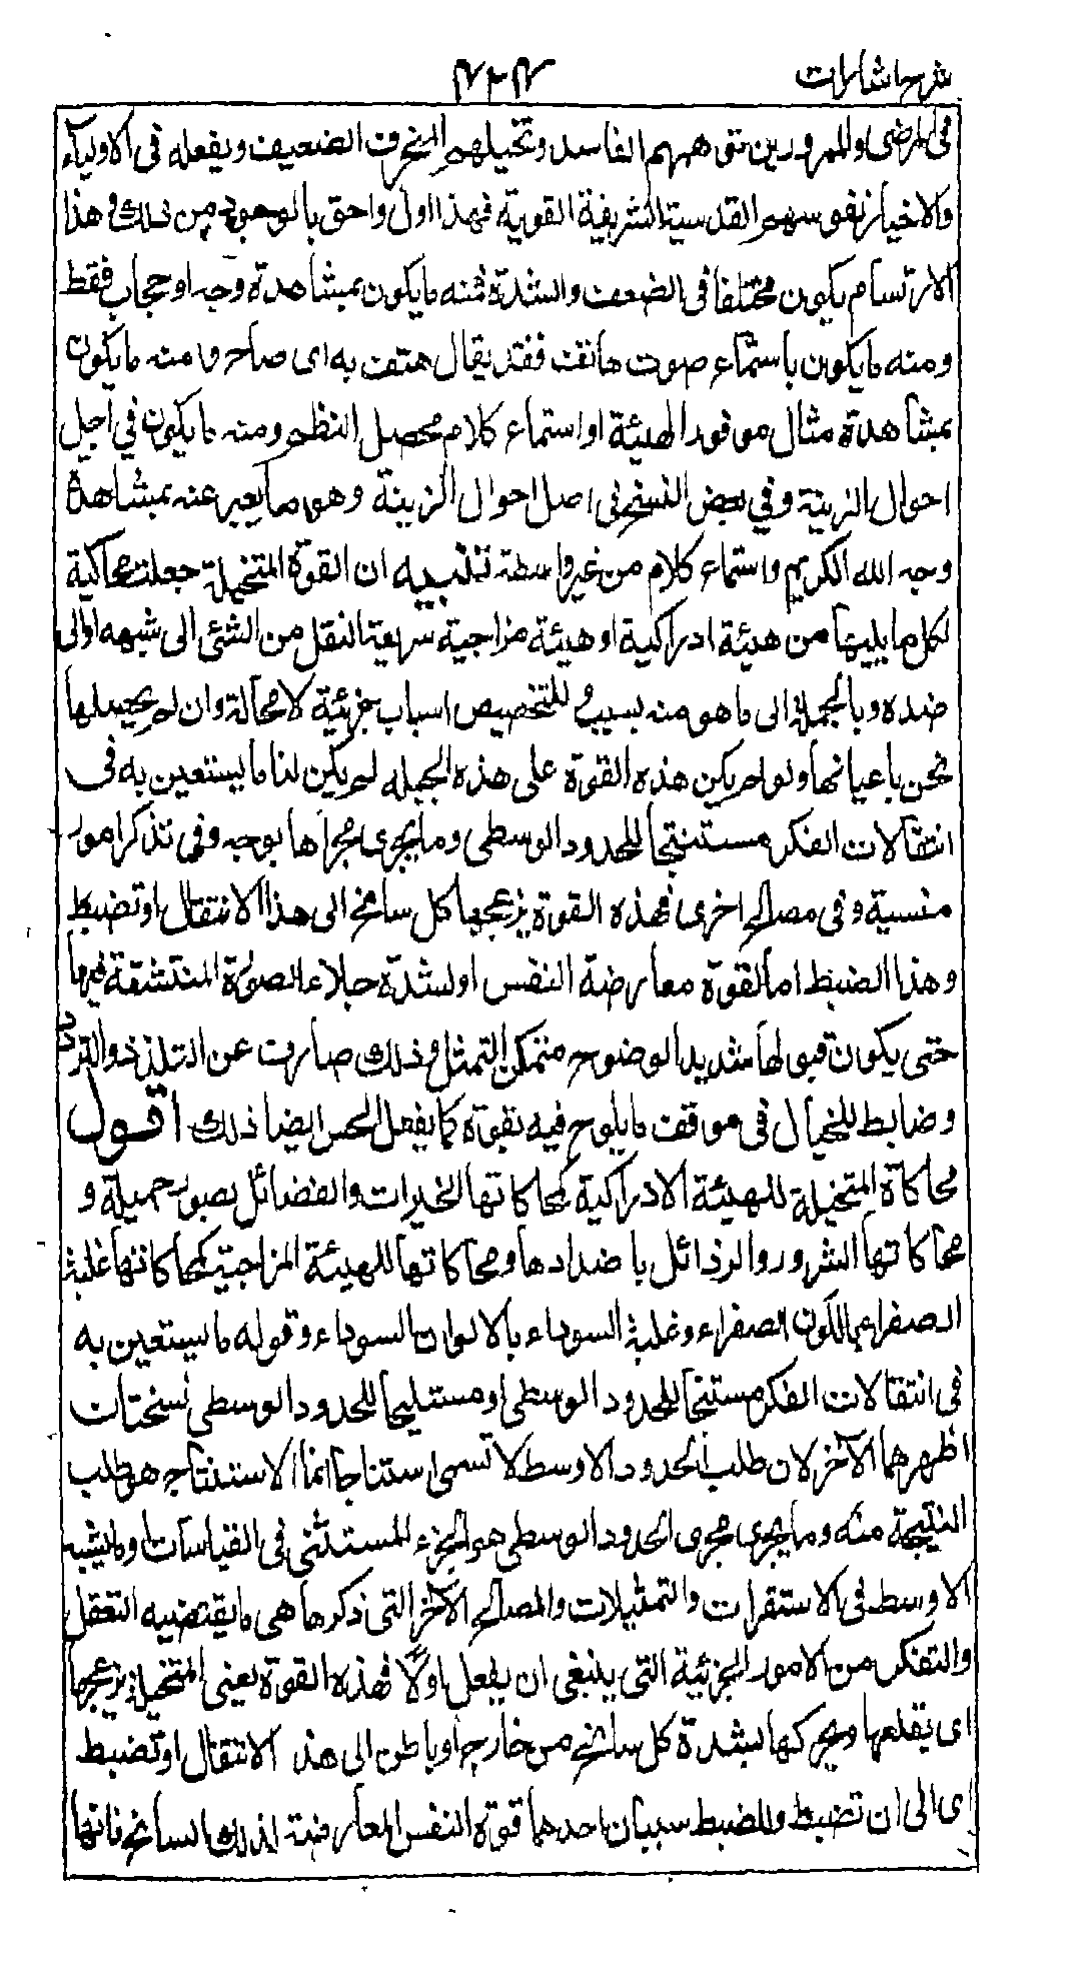 شرح اشارات
في المرضى والممرورين توهمهم الفاسد وتخيلهم المنحرف الضعيف ويفعله في الاولياء
والاخيار نفوسهم القدسية الشريفة القوية فهذا اولى واحق بالوجود من ذلك وهذا
الارتسام يكون مختلفا في الضعف والشدة فمنه ما يكون بمشاهدة وجه او حجاب فقط
ومنه ما يكون باستماع صوت هاتف فقد يقال هتف به اى صاح ومنه ما يكون
بمشاهدة مثال موفور الهيئة او استماع كلام محصل النظم ومنه ما يكون في اجل
احوال الزينة وفي بعض النسخ في اصل احوال الزينة وهو ما يعبر عنه بمشاهدة
وجه الله الكريم واستماع كلام من غير واسطة تنبيه ان القوة المتخيلة جعلت محاكية
لكل ما يليها من هيئة ادراكية او هيئة مزاجية سريعة النقل من الشئ الى شبهه او الى
ضده وبالجملة الى ما هو منه بسبب وللتخصيص اسباب جزئية لا محالة وان لم نحصلها
نحن باعيانها ولو لم يكن هذه القوة على هذه الجبلة لم يكن لنا ما يستعين به في
انتقالات الفكر مستنتجا للحدود الوسطى وما يجرى مجراها بوجه وفى تذكر امور
منسية وفى مصالح اخرى فهذه القوة يزعجها كل سانح الى هذا الانتقال او تضبط
وهذا الضبط اما لقوة معارضة النفس او لشدة جلاء الصورة المنتقشة فيها
حتى يكون قبولها شديد الوضوح متمكن التمثل وذلك صارف عن التلذذ والتردد
وضابط للخيال في موقف ما يلوح فيه بقوة كما يفعل الحس ايضا ذلك اقول
محاكاة المتخيلة للهيئة الادراكية كمحاكاتها الخيرات والفضائل بصور جميلة و
محاكاتها الشرور والرذائل باضدادها ومحاكاتها للهيئة المزاجية كمحاكاتها غلبة
الصفراء باللون الصفراء وغلبة السوداء بالالوان السوداء وقوله ما يستعين به
في انتقالات الفكر مستنتجا للحدود الوسطى او مستليحا للحدود الوسطى نسختان
اظهرهما الآخر لان طلب الحدود الاوسط لا تسمى استنتاجا انما الاستنتاج هو طلب
النتيجة منه وما يجرى مجرى الحدود الوسطى هو الجزء المستثنى في القياسات وما يشبه
الاوسط في الاستقرات والتمثيلات والمصالح الآخر التى ذكرها هى ما يقتضيه التعقل
والتفكر من الامور الجزئية التى ينبغى ان يفعل اولا فهذه القوة يعنى المتخيلة يزعجها
اى يقلعها ويحركها بشدة كل سانح من خارج او باطن الى هذ الانتقال او تضبط
اى الى ان تضبط وللضبط سببان احدهما قوة النفس المعارضة لذلك السانح فانها